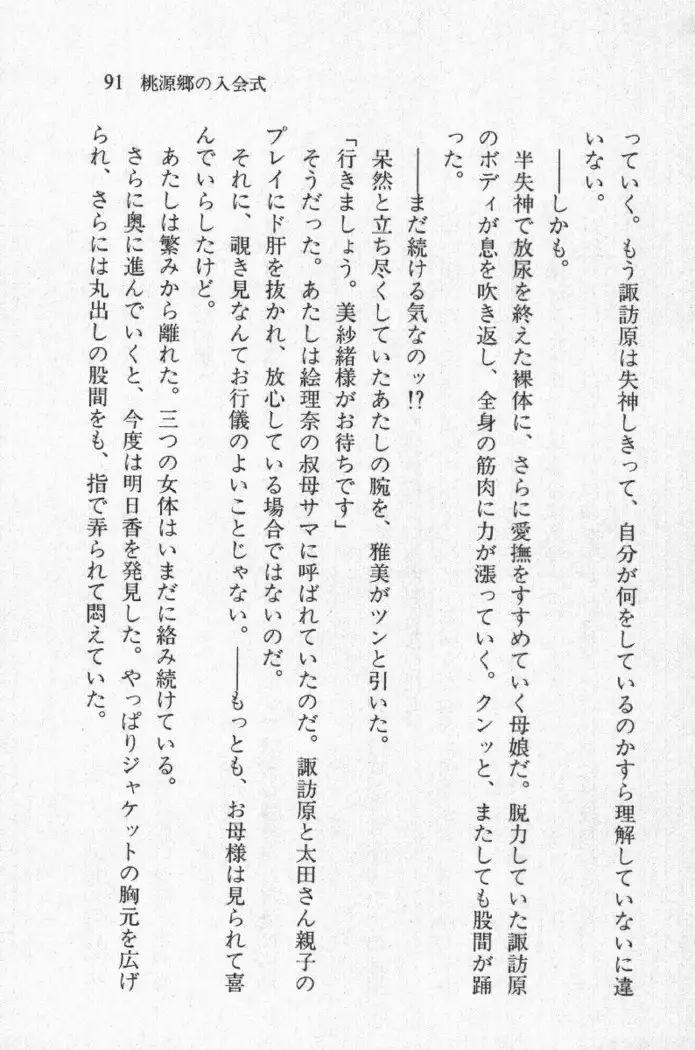 91 桃源郷の入会式
っていく。もう諏訪原は失神しきって、自分が何をしているのかすら理解していないに違
いない。
――しかも。
半失神で放尿を終えた裸体に、さらに愛撫をすすめていく母娘だ。脱力していた諏訪原
のボディが息を吹き返し、全身の筋肉に力が漲っていく。クンッと、またしても股間が踊
った。
――まだ続ける気なのッ!?
呆然と立ち尽くしていたあたしの腕を、雅美がツンと引いた。
「行きましょう。美紗緒様がお待ちです」
そうだった。あたしは絵理奈の叔母サマに呼ばれていたのだ。諏訪原と太田さん親子の
プレイにド肝を抜かれ、放心している場合ではないのだ。
それに、覗き見なんてお行儀のよいことじゃない。――もっとも、お母様は見られて喜
んでいらしたけど。
あたしは繁みから離れた。三つの女体はいまだに絡み続けている。
さらに奥に進んでいくと、今度は明日香を発見した。やっぱりジャケットの胸元を広げ
られ、さらには丸出しの股間をも、指で弄られて悶えていた。